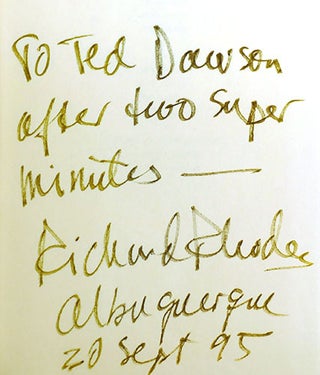 To Ted Dawson
after two super
minutes —
Richard Rhodes
Albuquerque
20 Sept 95